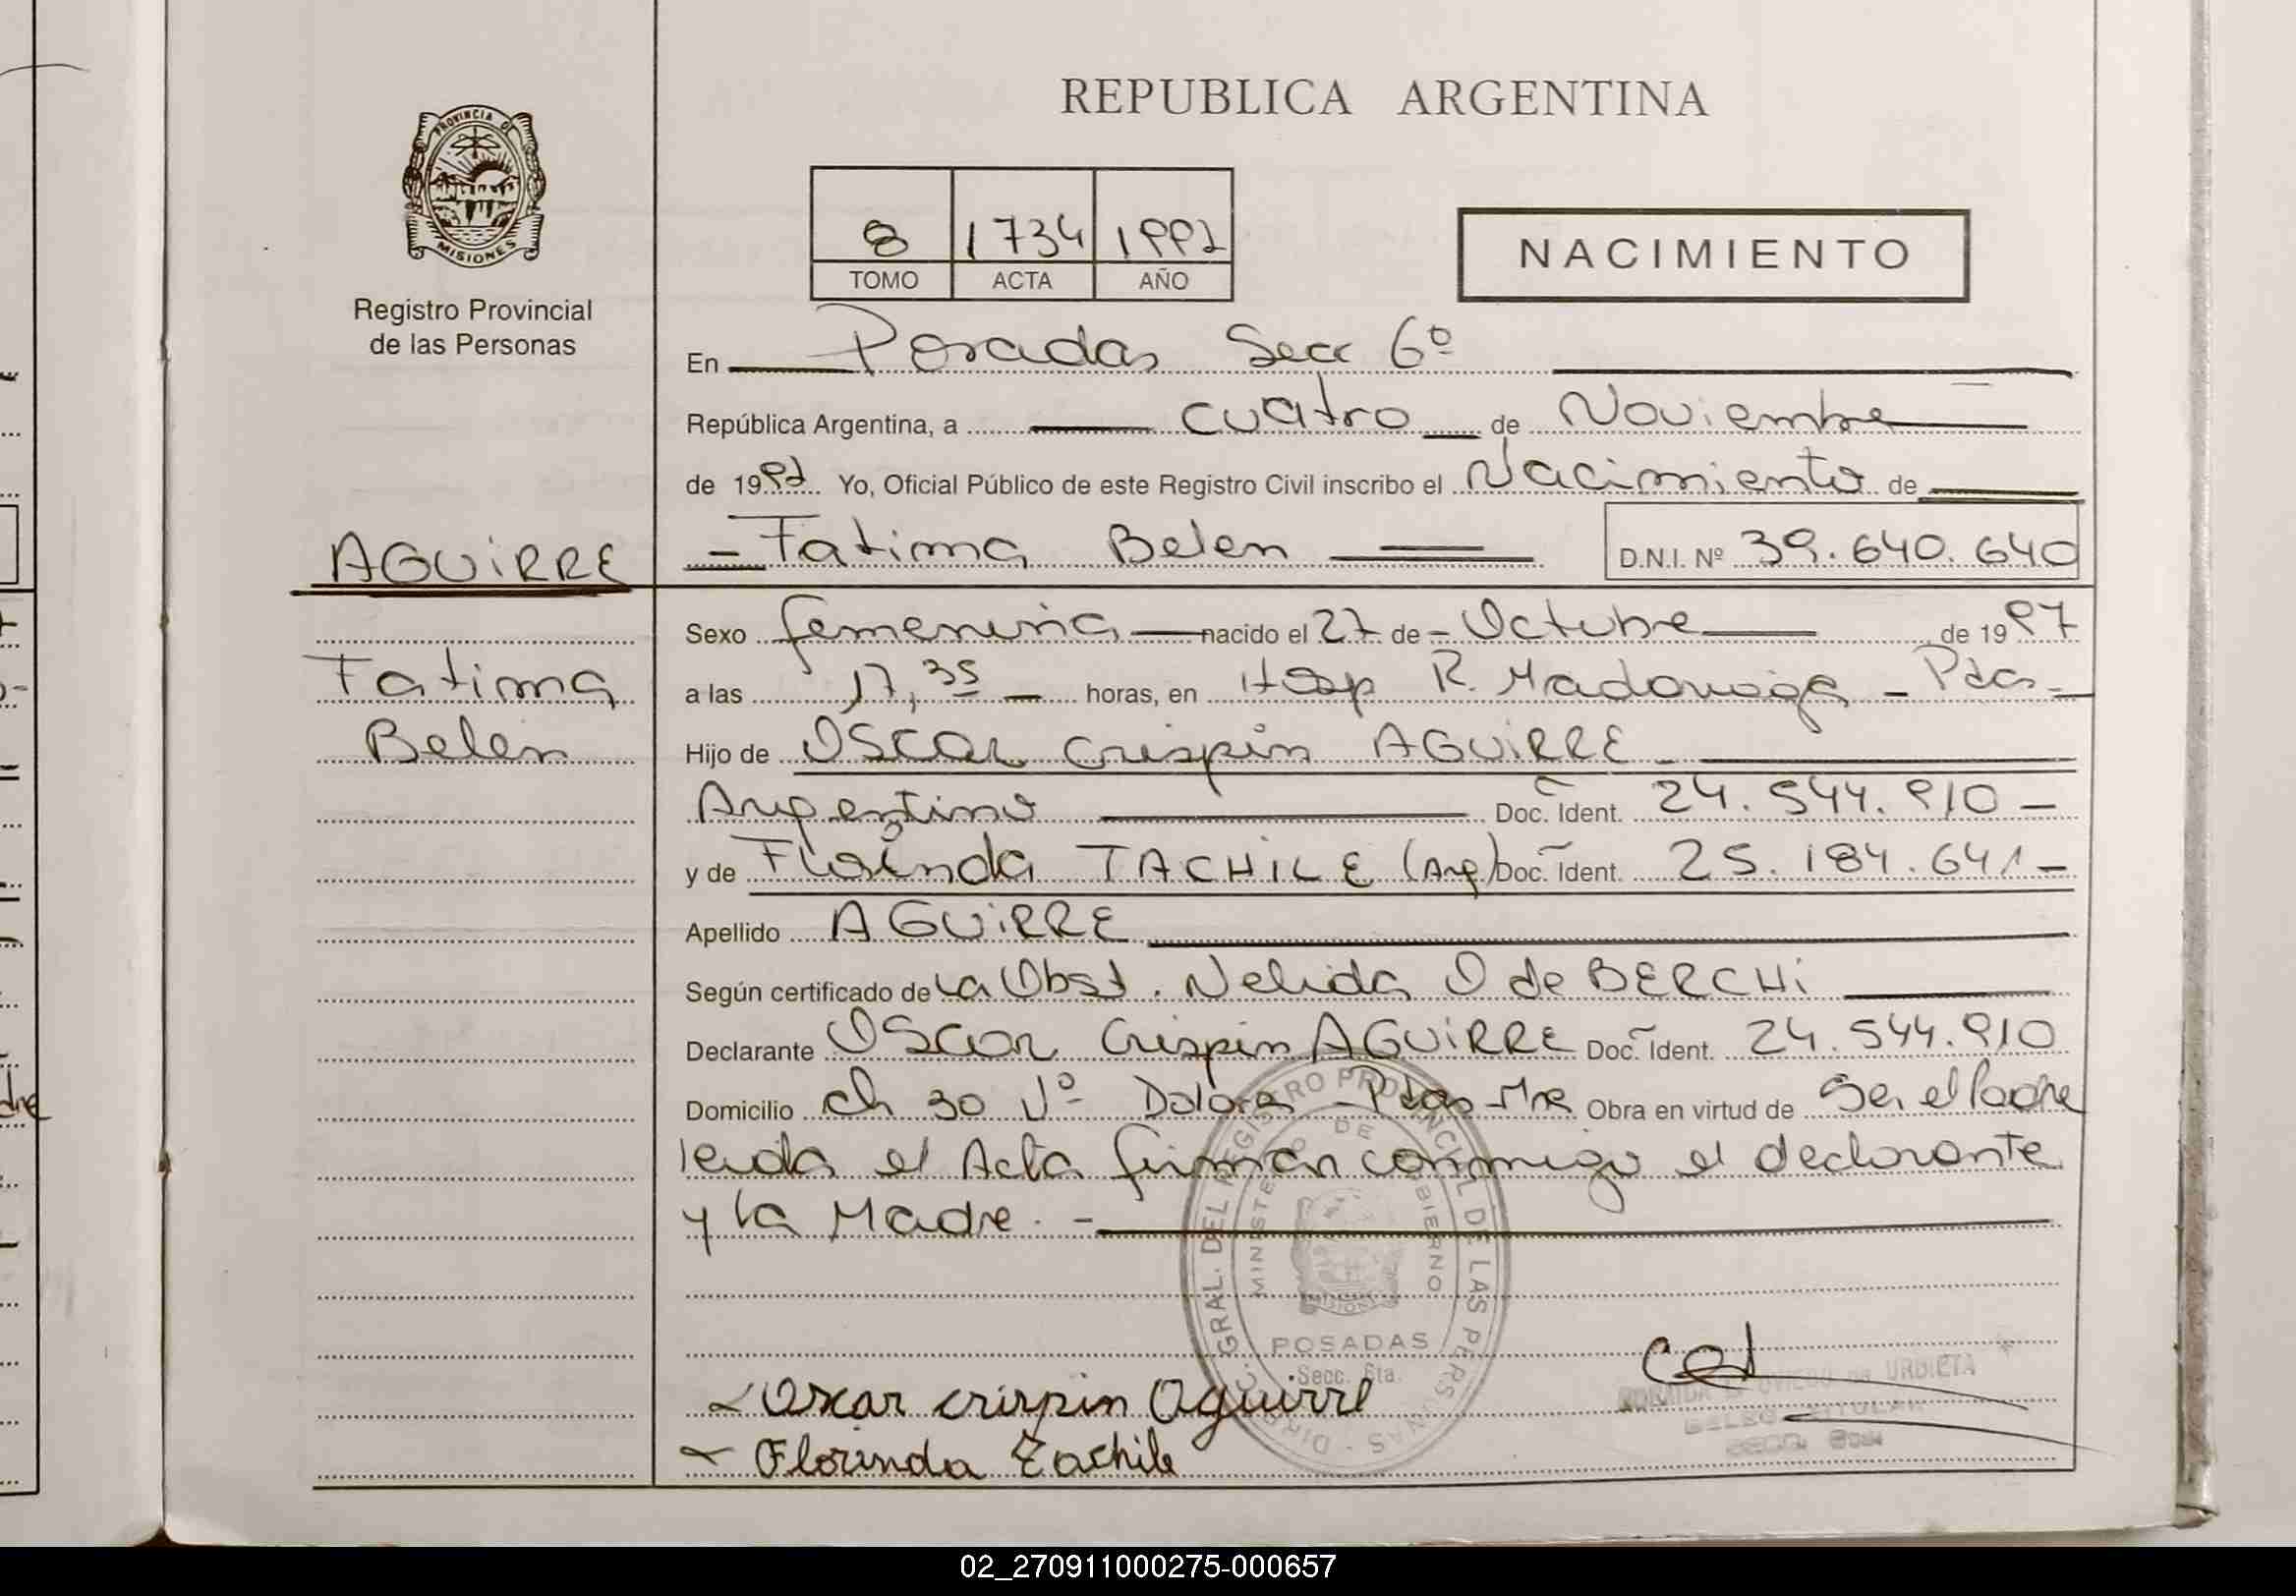 REPUBLICA ARGENTINA
PROVINCIA DE
MISIONES
Registro Provincial
de las Personas
8 1734 1997
TOMO ACTA AÑO
NACIMIENTO
En Posadas Secc 6º
República Argentina, a cuatro de Noviembre
de 1997 Yo, Oficial Público de este Registro Civil inscribo el Nacimiento de
AGUiRRE
Fatima Belen D.N.I. Nº 39.640.640
Sexo femenina nacido el 27 de Octubre de 1997
Fatima
a las 17,35 horas, en Hosp R. Madariaga - Pdas -
Belen
Hijo de OSCAR Crispin AGUiRRE
Argentino Doc. Ident. 24.544.910 -
y de Florinda TACHiLE (Arg) Doc. Ident. 25.184.641 -
Apellido AGUiRRE
Según certificado de La Obst. Nelida O de BERCHi
Declarante OSCAR Crispin AGUiRRE Doc. Ident. 24.544.910
Domicilio ch 30 Vº Dolores - Pdas - Mnes Obra en virtud de Ser el Padre
leida el Acta firman conmigo el declarante
y la Madre. -
DIREC. GRAL. DEL REGISTRO PROVINCIAL DE LAS PERSONAS
MINISTERIO DE GOBIERNO
MISIONES
POSADAS
Secc. 6ta.
Oscar crispin Aguirre
OVIEDO DE URBIETA
TITULAR
Florinda Tachile
02_270911000275-000657